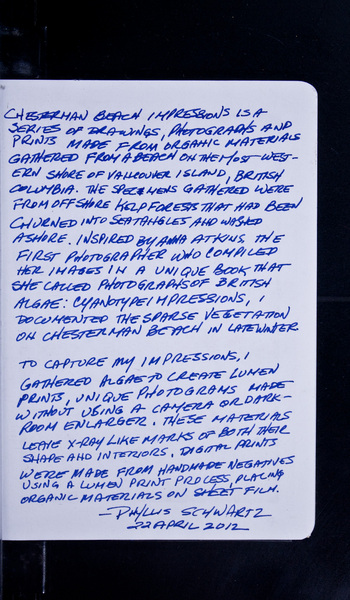 CHESTERMAN BEACH IMPRESSIONS IS A
SERIES OF DRAWINGS, PHOTOGRAPHS AND
PRINTS MADE FROM ORGANIC MATERIALS
GATHERED FROM A BEACH ON THE MOST WEST-
ERN SHORE OF VANCOUVER ISLAND, BRITISH
COLUMBIA. THE SPECIMENS GATHERED WERE
FROM OFFSHORE KELP FORESTS THAT HAD BEEN
CHURNED INTO SEATANGLES AND WASHED
ASHORE. INSPIRED BY ANNA ATKINS THE
FIRST PHOTOGRAPHER WHO COMPILED
HER IMAGES IN A UNIQUE BOOK THAT
SHE CALLED PHOTOGRAPHS OF BRITISH
ALGAE: CYANOTYPE IMPRESSIONS, I
DOCUMENTED THE SPARSE VEGETATION
ON CHESTERMAN BEACH IN LATE WINTER
TO CAPTURE MY IMPRESSIONS, I
GATHERED ALGAE TO CREATE LUMEN
PRINTS, UNIQUE PHOTOGRAMS MADE
WITHOUT USING A CAMERA OR DARK-
ROOM ENLARGER. THESE MATERIALS
LEAVE X-RAY LIKE MARKS OF BOTH THEIR
SHAPE AND INTERIORS. DIGITAL PRINTS
WERE MADE FROM HANDMADE NEGATIVES
USING A LUMEN PRINT PROCESS, PLACING
ORGANIC MATERIALS ON SHEET FILM.
—PHYLLIS SCHWARTZ
22 APRIL 2012